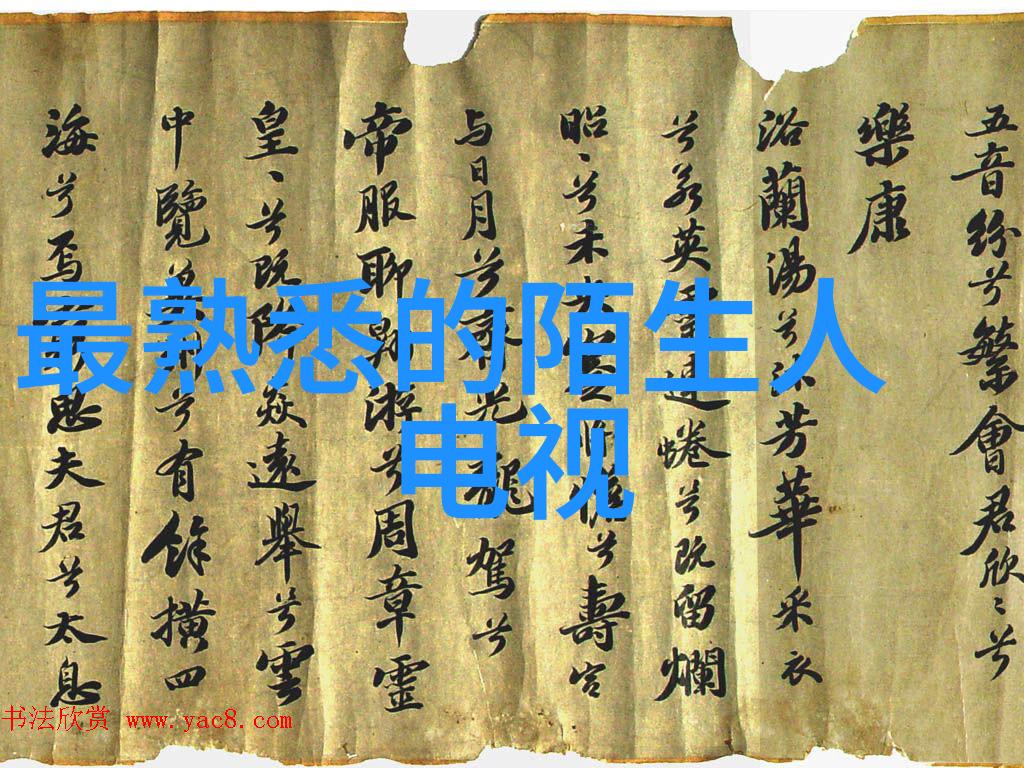 五音紛兮繁會君欣〻兮
樂康
浴蘭湯兮沐芳華采衣
兮若英靈連蜷兮既留爛
昭〻兮未央蹇憺兮壽宮
与日月兮齊光龍駕兮
帝服聊翱游兮周章靈
皇〻兮既降猋遠舉兮雲
中覽冀州兮有餘橫四
海兮焉窮思夫君兮太息
最熟悉的陌生人
电视
书法欣赏 www.yac8.com